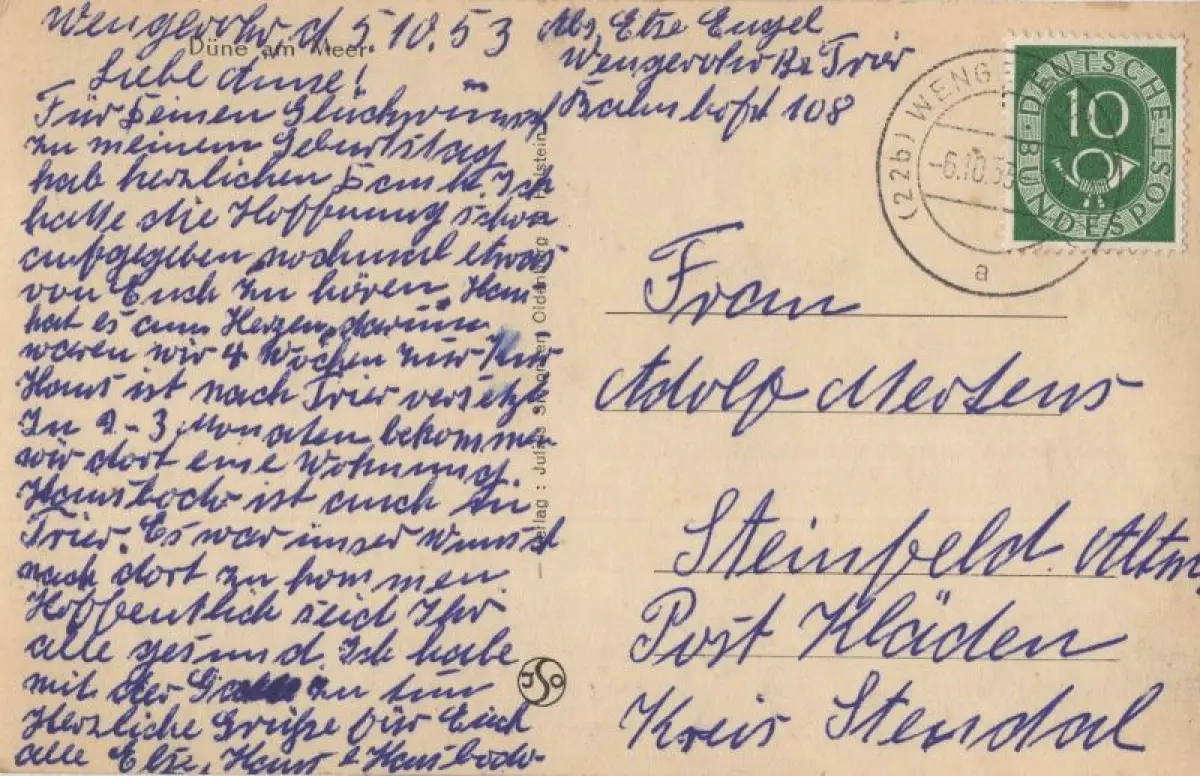 Wengerohr d 5.10.53
Düne am Meer
Liebe Anne!
Für Deinen Glückwunsch
zu meinem Geburtstag
hab herzlichen Dank. Ich
hatte die Hoffnung schon
aufgegeben nochmal etwas
von Euch zu hören. Hans
hat es am Herzen, darum
waren wir 4 Wochen zur Kur
Hans ist nach Trier versetzt
In 2-3 Monaten bekommen
wir dort eine Wohnung.
Hansbodo ist auch in
Trier. Es war unser Wunsch
nach dort zu kommen
Hoffentlich seid Ihr
alle gesund. Ich habe
mit der zu tun
Herzliche Grüße für Euch
alle Else, Hans & Hansbodo
Abs, Else Engel
Wengerohr Bz Trier
Bahnhofst 108
Verlag: Julius Oldenburg Holstein
(22b) WENG
-6.10.53
a
DEUTSCHE BUNDESPOST
10
Frau
Adolf Mertens
Steinfeld Altm
Post Kläden
Kreis Stendal